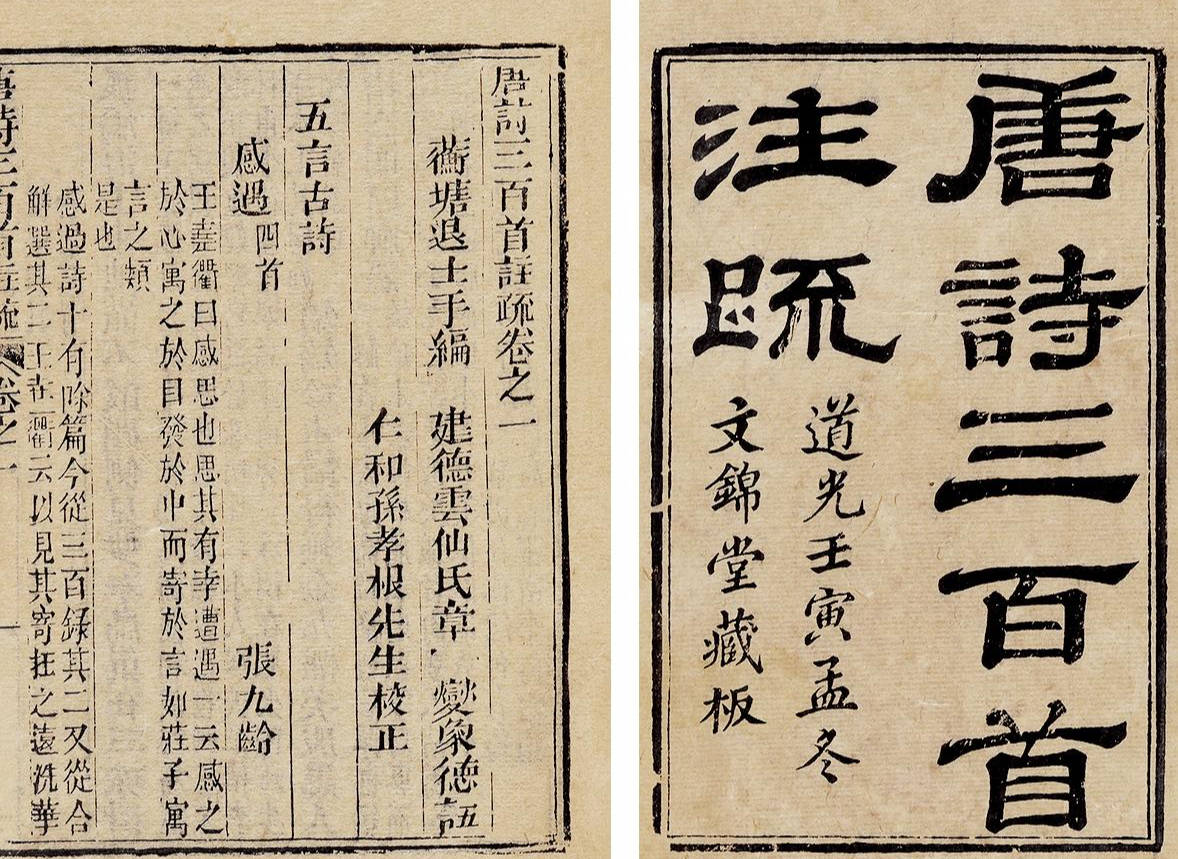 唐詩三百首
注疏
道光壬寅孟冬
文錦堂藏板
唐詩三百首註疏卷之一
蘅塘退士手編 建德雲仙氏章 燮象德註
仁和孫孝根先生校正
五言古詩
感遇四首 張九齡
王堯衢曰感思也思其有幸遭遇一云感之
於心寓之於目發於中而寄於言如莊子寓
言之類
是也
感遇詩十有餘篇今從三百錄其二又從合
解選其二王堯衢云以見其寄托之遠洗華
唐詩三百首註疏 卷之一